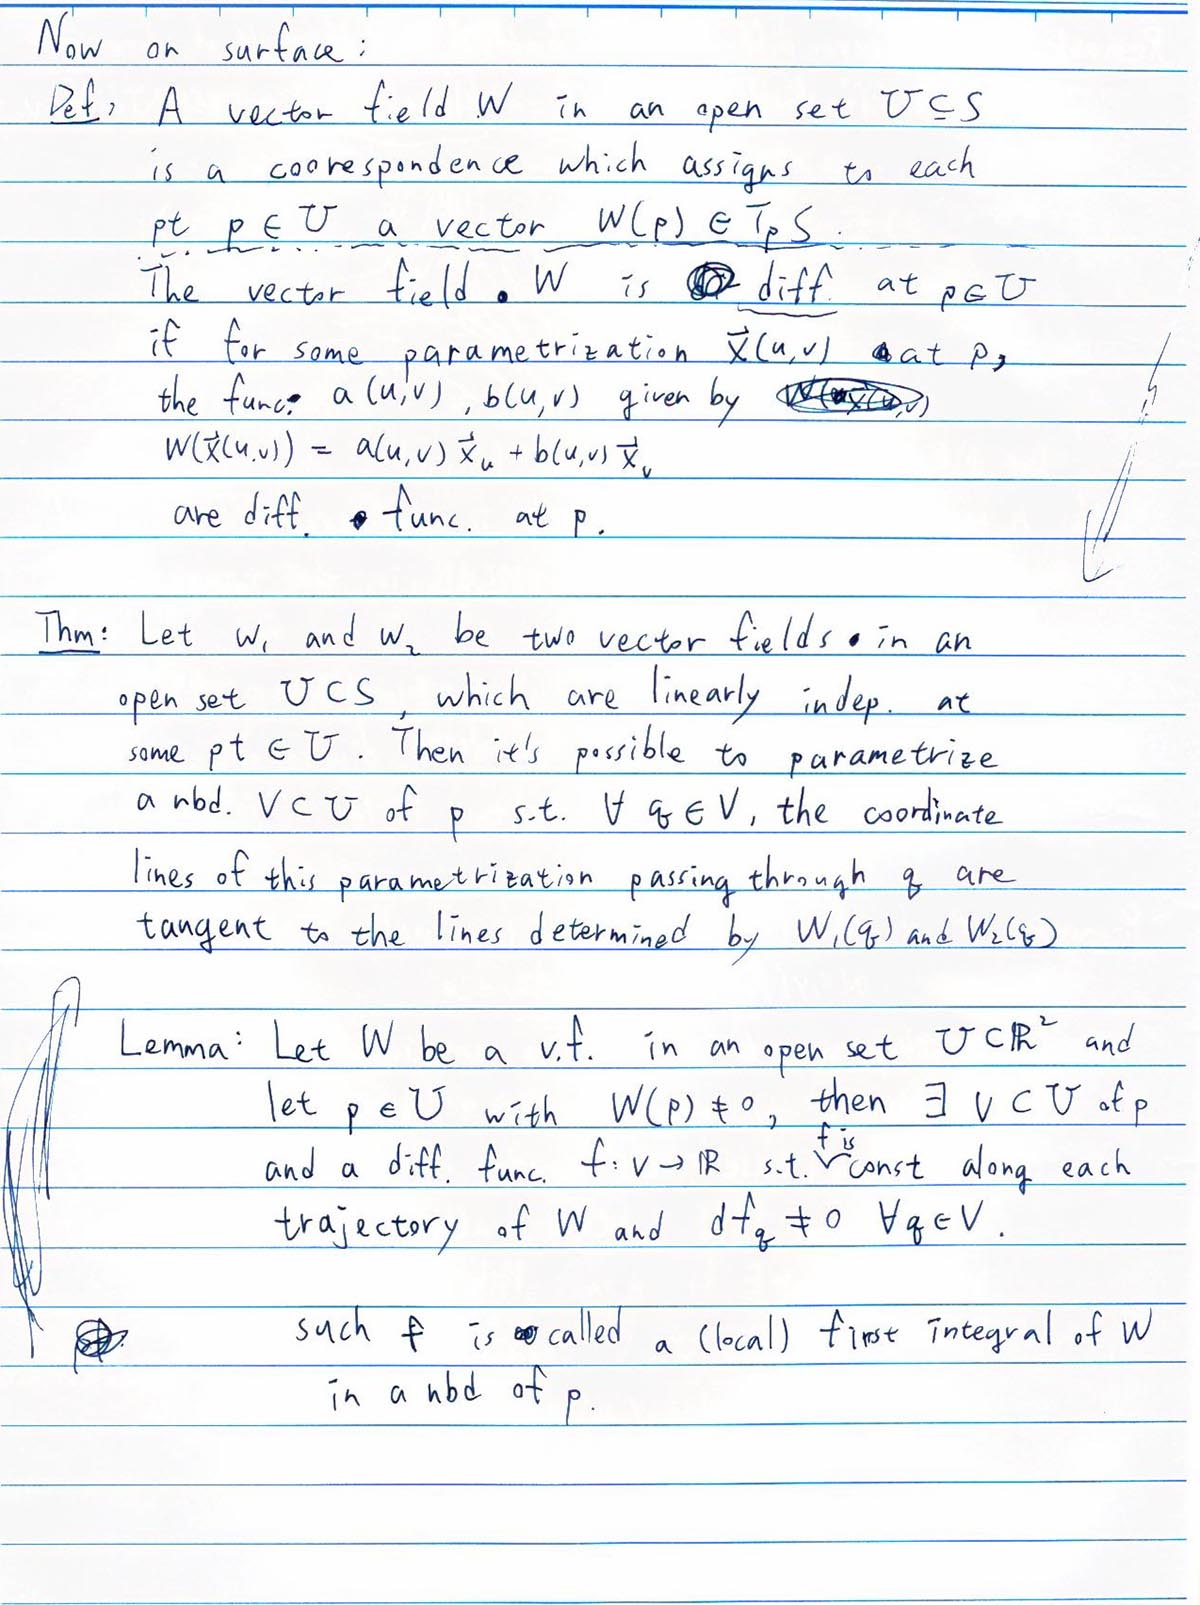 Now on surface:
Def, A vector field W in an open set U⊆S
is a coorespondence which assigns to each
pt p∈U a vector W(p) ∈ TpS.
The vector field W is diff. at p∈U
if for some parametrization x⃗(u,v) at p,
the func. a(u,v), b(u,v) given by
W(x⃗(u,v)) = a(u,v) x⃗ᵤ + b(u,v) x⃗ᵥ
are diff. func. at p.
Thm: Let w₁ and w₂ be two vector fields in an
open set U⊂S, which are linearly indep. at
some pt ∈ U. Then it's possible to parametrize
a nbd. V⊂U of p s.t. ∀ q∈V, the coordinate
lines of this parametrization passing through q are
tangent to the lines determined by W₁(q) and W₂(q)
Lemma: Let W be a v.f. in an open set U⊂ℝ² and
let p∈U with W(p)≠0, then ∃ V⊂U of p
and a diff. func. f: V→ℝ s.t. f is const along each
trajectory of W and df_q ≠ 0 ∀q∈V.
such f is called a (local) first integral of W
in a nbd of p.